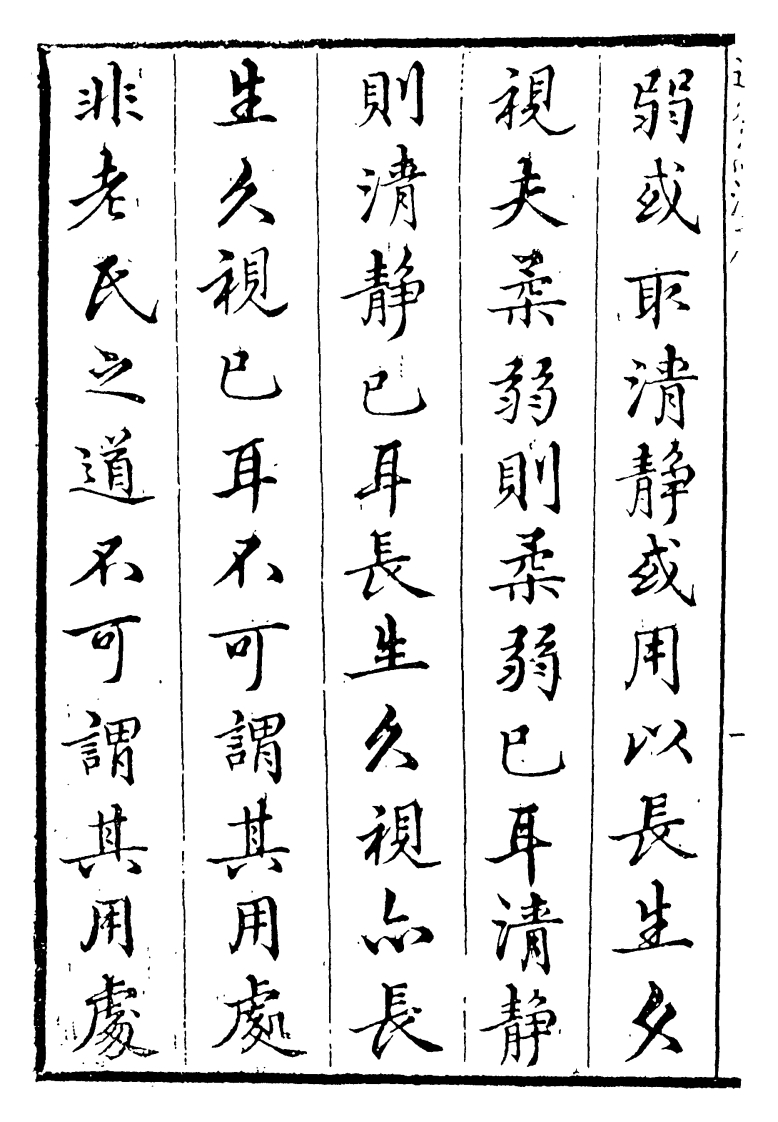 弱或取清静或用以長生久
視夫柔弱則柔弱已耳清静
則清静已耳長生久視亦長
生久視已耳不可謂其用處
非老氏之道不可謂其用處